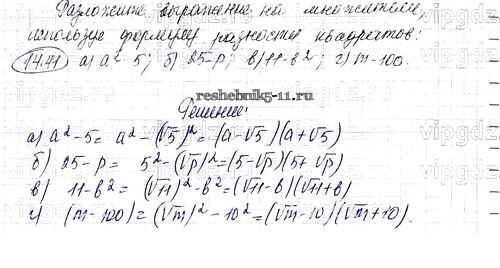 Разложите выражение на множители,
используя формулу разности квадратов:
14.41 а) a² - 5; б) 25 - p; в) 11 - b²; г) m - 100.
reshebnik5-11.ru
Решение:
а) a² - 5 = a² - (√5)² = (a - √5)(a + √5)
б) 25 - p = 5² - (√p)² = (5 - √p)(5 + √p)
в) 11 - b² = (√11)² - b² = (√11 - b)(√11 + b)
г) (m - 100) = (√m)² - 10² = (√m - 10)(√m + 10).